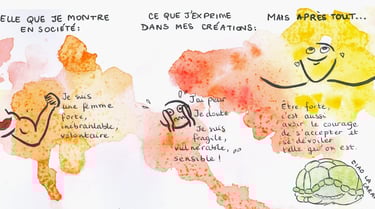 ELLE QUE JE MONTRE
EN SOCIÉTÉ:
Je suis
une femme
forte,
inébranlable,
volontaire.
CE QUE J'EXPRIME
DANS MES CRÉATIONS:
J'ai peur
Je doute
Je suis
fragile,
vulnérable,
sensible !
MAIS APRÈS TOUT...
Être forte,
c'est aussi
avoir le courage
de s'accepter et
se dévoiler
telle qu'on est.
CIAO LA